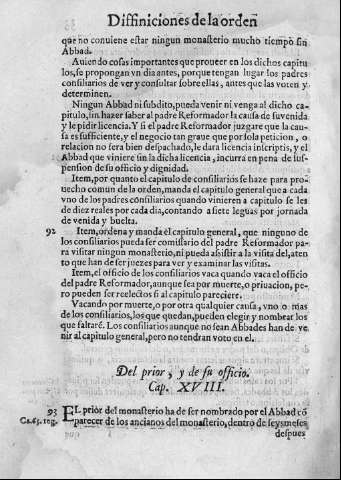 Diffiniciones de la orden
que no conuiene estar ningun monasterio mucho tiempo sin
Abbad.
Auiendo cosas importantes que proueer en los dichos capitu
los, se propongan vn dia antes, porque tengan lugar los padres
consiliarios de ver y consultar sobre ellas, antes que las voten y
determinen.
Ningun Abbad ni subdito, pueda venir ni venga al dicho ca-
pitulo, sin hazer saber al padre Reformador la causa de su venida
y le pidir licencia. Y si el padre Reformador juzgare que la cau-
sa es sufficiente, y el negocio tan graue que por sola peticion, o
relacion no sera bien despachado, le dara licencia inscriptis, y el
Abbad que viniere sin la dicha licencia, incurra en pena de sus-
pension de su officio y dignidad.
Item, por quanto el capitulo de consiliarios se haze para pro-
uecho comun de la orden, manda el capitulo general que a cada
vno de los padres cōsiliarios quando vinieren a capitulo se les
de diez reales por cada dia, contando a siete leguas por jornada
de venida y buelta.
92 Item, ordena y manda el capitulo general, que ninguno de
los consiliarios pueda ser comissario del padre Reformador pa-
ra visitar ningun monasterio, ni pueda assistir a la visita del, aten
to que han de ser juezes para ver y examinar las visitas.
Item, el officio de los consiliarios vaca quando vaca el officio
del padre Reformador, aunque sea por muerte, o priuacion, pe-
ro pueden ser reelectos si al capitulo pareciere.
Vacando por muerte, o por otra qualquier causa, vno o mas
de los consiliarios, los que quedan, pueden elegir y nombrar los
que faltarē. Los consiliarios aunque no sean Abbades han de ve-
nir al capitulo general, pero no tendran voto en el.
Del prior, y de su officio.
Cap. XVIII.
93 EL prior del monasterio ha de ser nombrado por el Abbad cō
Ca. 65. reg. parecer de los ancianos del monasterio, dentro de seys meses
despues